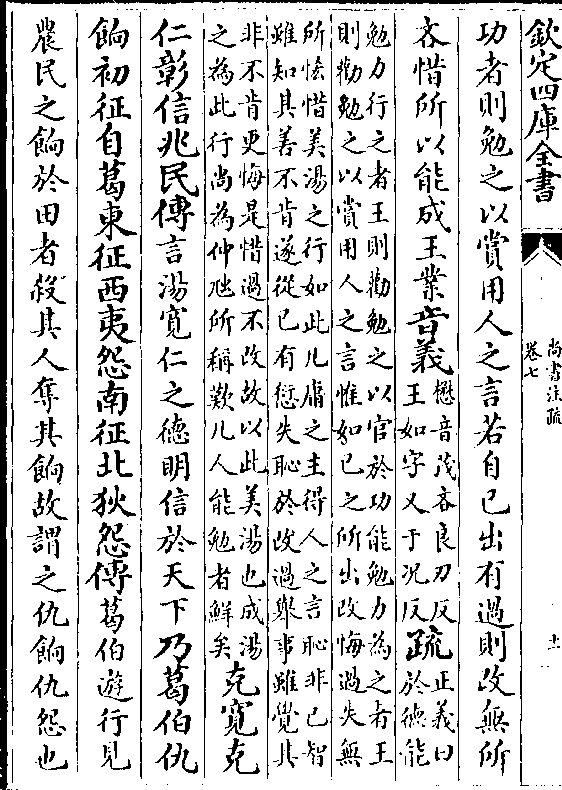 欽定四庫全書
尚書注疏
卷七
十一
功者則勉之以賞用人之言若自己出有過則改無所
吝惜所以能成王業音義
懋音茂吝良刃反
王如字又于况反
疏
正義曰
於德能
勉力行之者王則勸勉之以官於功能勉力為之者王
則勸勉之以賞用人之言惟如己之所出改悔過失無
所恡惜美湯之行如此凡庸之主得人之言恥非己智
雖知其善不肯遂從己有愆失恥於改過舉事雖覺其
非不肯更悔是惜過不改故以此美湯也成湯
之為此行尚為仲虺所稱歎凡人能勉者鮮矣
克寛克
仁彰信兆民傳言湯寛仁之德明信於天下乃葛伯仇
餉初征自葛東征西夷怨南征北狄怨傳葛伯遊行見
農民之餉於田者殺其人奪其餉故謂之仇餉仇怨也